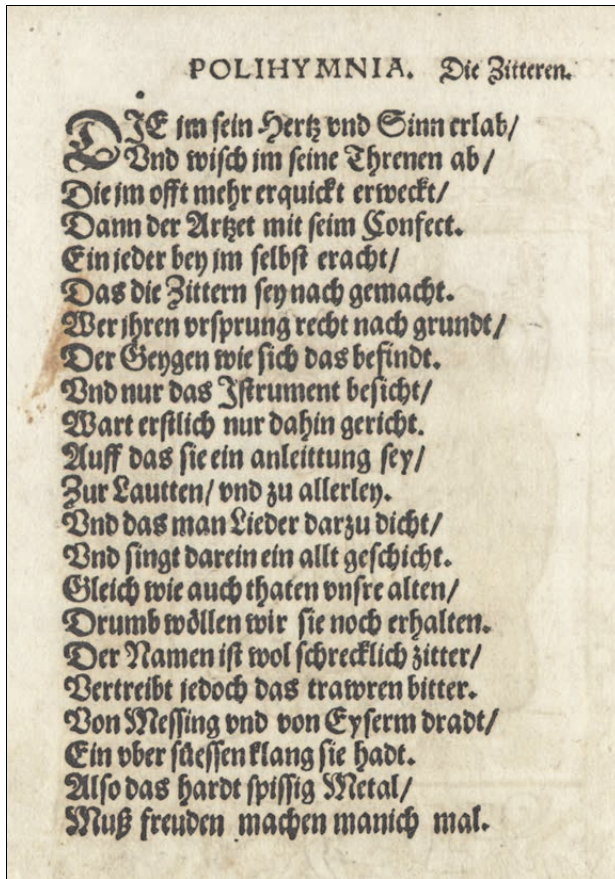 POLIHYMNIA. Die Zitteren.
DIE im sein Hertz vnd Sinn erlab/
Vnd wisch im seine Threnen ab/
Die im offt mehr erquickt erweckt/
Dann der Artzet mit seim Confect.
Ein jeder bey im selbst eracht/
Das die Zittern sey nach gemacht.
Wer jhren vrsprung recht nach grundt/
Der Geygen wie sich das befindt.
Vnd nur das Jstrument besicht/
Wart erstlich nur dahin gericht.
Auff das sie ein anleittung sey/
Zur Lautten/ vnd zu allerley.
Vnd das man Lieder darzu dicht/
Vnd singt darein ein allt geschicht.
Gleich wie auch thaten vnsre alten/
Drumb wöllen wir sie noch erhalten.
Der Namen ist wol schrecklich zitter/
Vertreibt jedoch das trawren bitter.
Von Messing vnd von Eyserm dradt/
Ein vber süessen klang sie hadt.
Also das hardt spissig Metal/
Muß freuden machen manich mal.